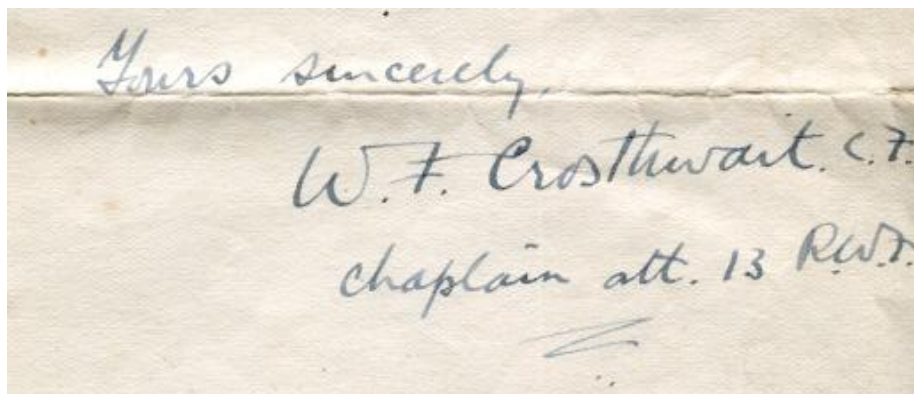 Yours sincerely,
W. F. Crosthwait. C.F.
chaplain att. 13 R.W.F.